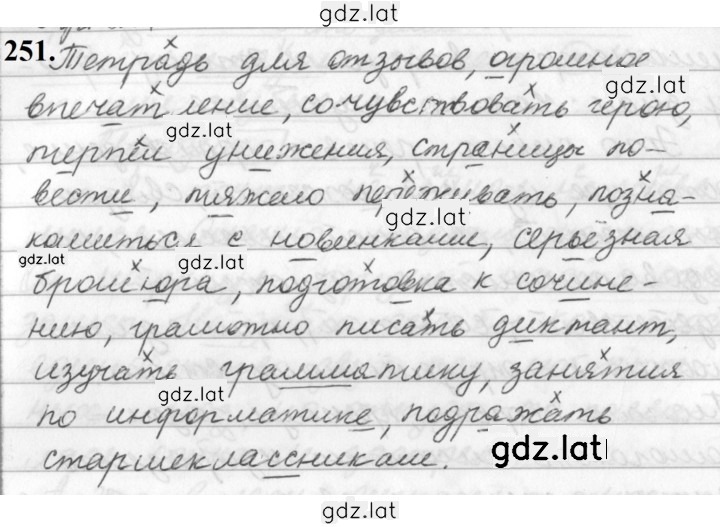 gdz.lat
251. Тетрадь для отзывов, огромное
gdz.lat
впечатление, сочувствовать герою,
gdz.lat
терпел унижения, страницы по-
вести, тяжело переживать, позна-
gdz.lat
комиться с новинками, серьёзная
gdz.lat gdz.lat
брошюра, подготовка к сочине-
нию, грамотно писать диктант,
изучать грамматику, занятия
gdz.lat
по информатике, подражать
gdz.lat
старшеклассникам.
gdz.lat